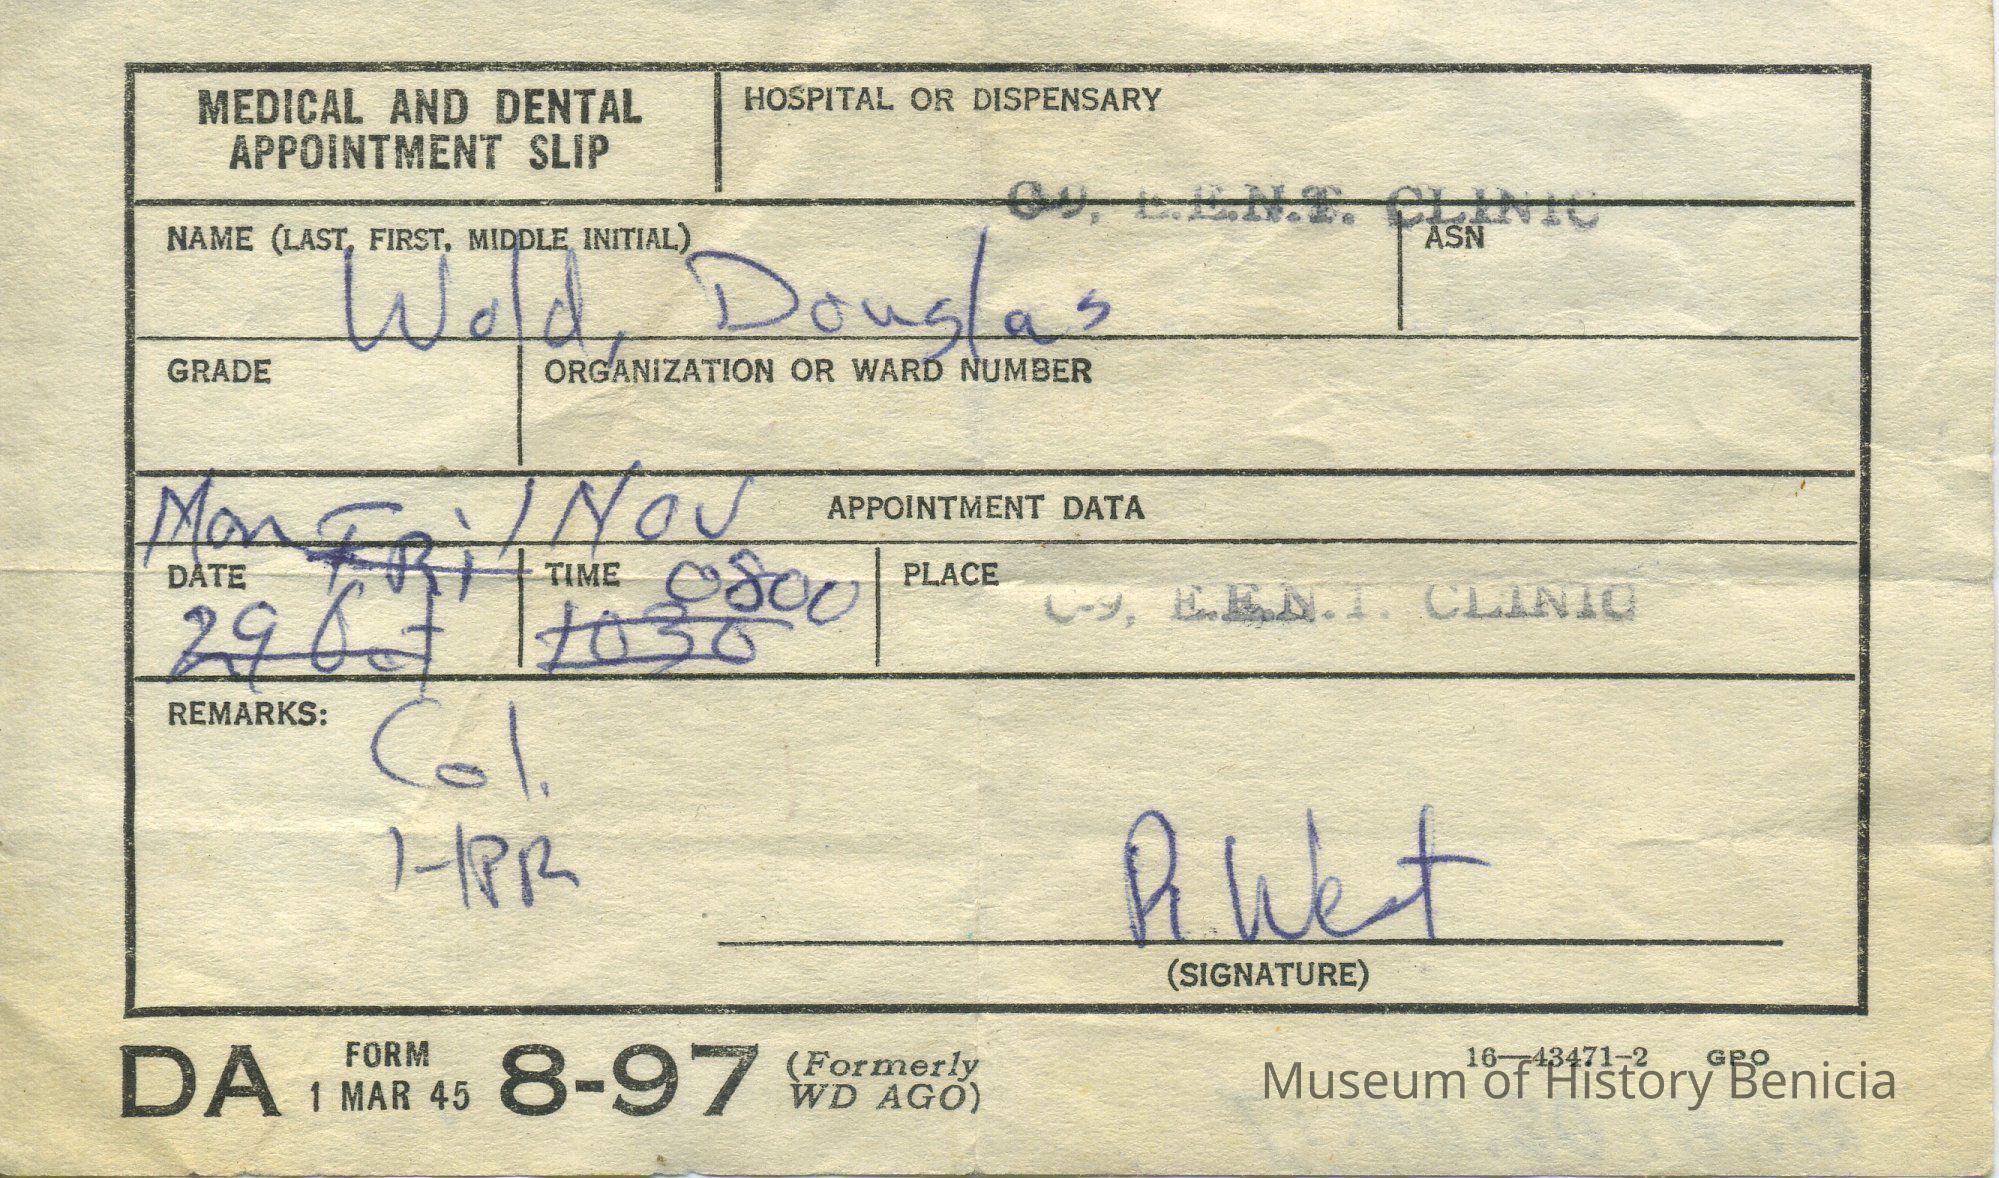 MEDICAL AND DENTAL
APPOINTMENT SLIP
HOSPITAL OR DISPENSARY
C-9, E.E.N.T. CLINIC
NAME (LAST, FIRST, MIDDLE INITIAL)
ASN
Wold, Douglas
GRADE
ORGANIZATION OR WARD NUMBER
Mon Fri 1 Nov
APPOINTMENT DATA
DATE
TIME 0800
PLACE
C-9, E.E.N.T. CLINIC
29 Oct
1030
REMARKS:
Col.
R. West
(SIGNATURE)
DA FORM 1 MAR 45 8-97 (Formerly WD AGO)
16—43471-2 GPO
Museum of History Benicia